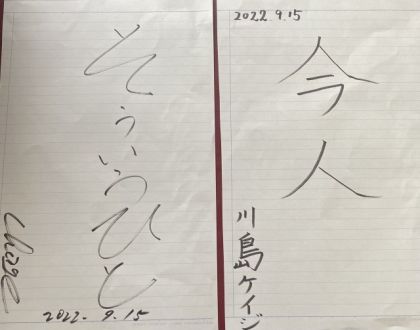 2022 9.15
今人
川島ケイジ
そういうひと
2022. 9.15